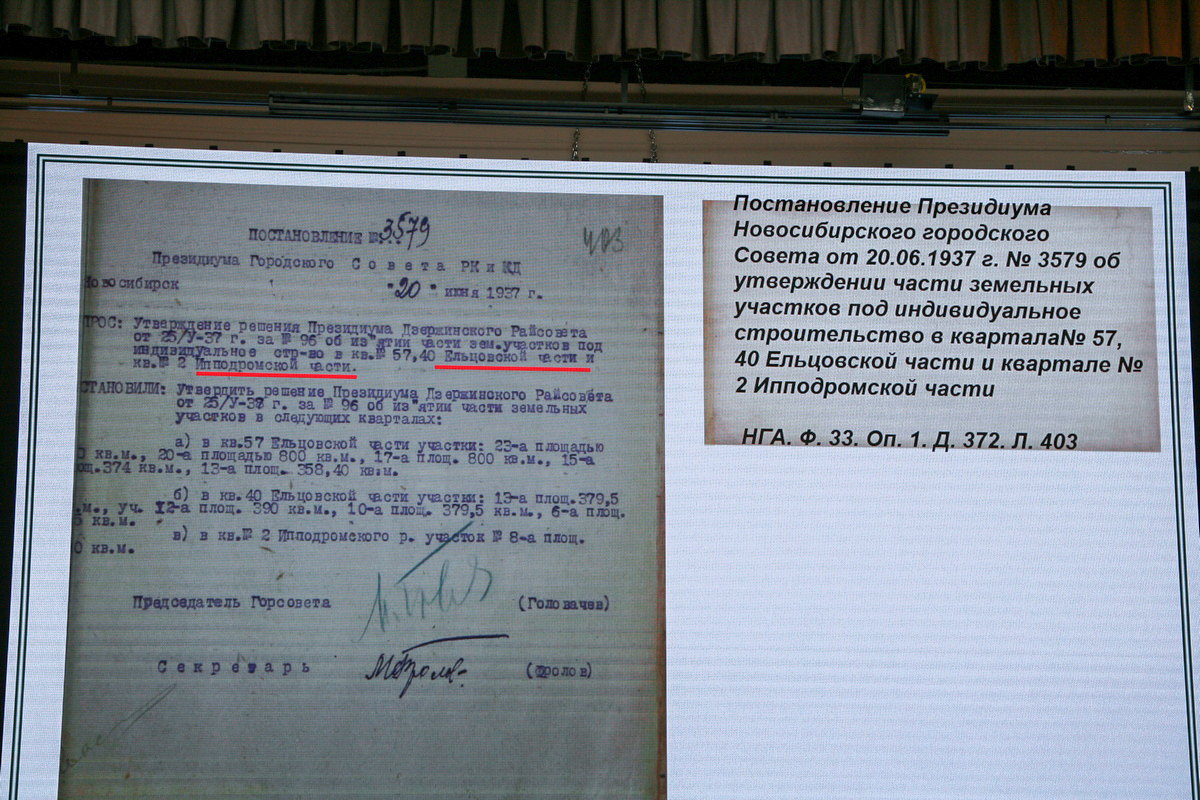 ПОСТАНОВЛЕНИЕ № 3579
403
Президиума Городского Совета РК и КД
Новосибирск "20" июня 1937 г.
ПРОС: Утверждение решения Президиума Дзержинского Райсовета
от 25/У-37 г. за № 96 об из"ятии части зем.участков под
индивидуальное стр-во в кв.№ 57,40 Ельцовской части и
кв.№ 2 Ипподромской части.
СТАНОВИЛИ: Утвердить решение Президиума Дзержинского Райсовета
от 25/У-37 г. за № 96 об из"ятии части земельных
участков в следующих кварталах:
а) в кв.57 Ельцовской части участки: 23-а площадью
0 кв.м., 20-а площадью 800 кв.м., 17-а площ. 800 кв.м., 15-а
ощ.374 кв.м., 13-а площ. 358,40 кв.м.
б) в кв.40 Ельцовской части участки: 13-а площ.379,5
.м., уч. 12-а площ. 390 кв.м., 10-а площ. 379,5 кв.м., 6-а площ.
5 кв.м.
в) в кв.№ 2 Ипподромского р. участок № 8-а площ.
0 кв.м.
Председатель Горсовета (Головачев)
Секретарь (Фролов)
Постановление Президиума
Новосибирского городского
Совета от 20.06.1937 г. № 3579 об
утверждении части земельных
участков под индивидуальное
строительство в квартала№ 57,
40 Ельцовской части и квартале №
2 Ипподромской части
НГА. Ф. 33. Оп. 1. Д. 372. Л. 403